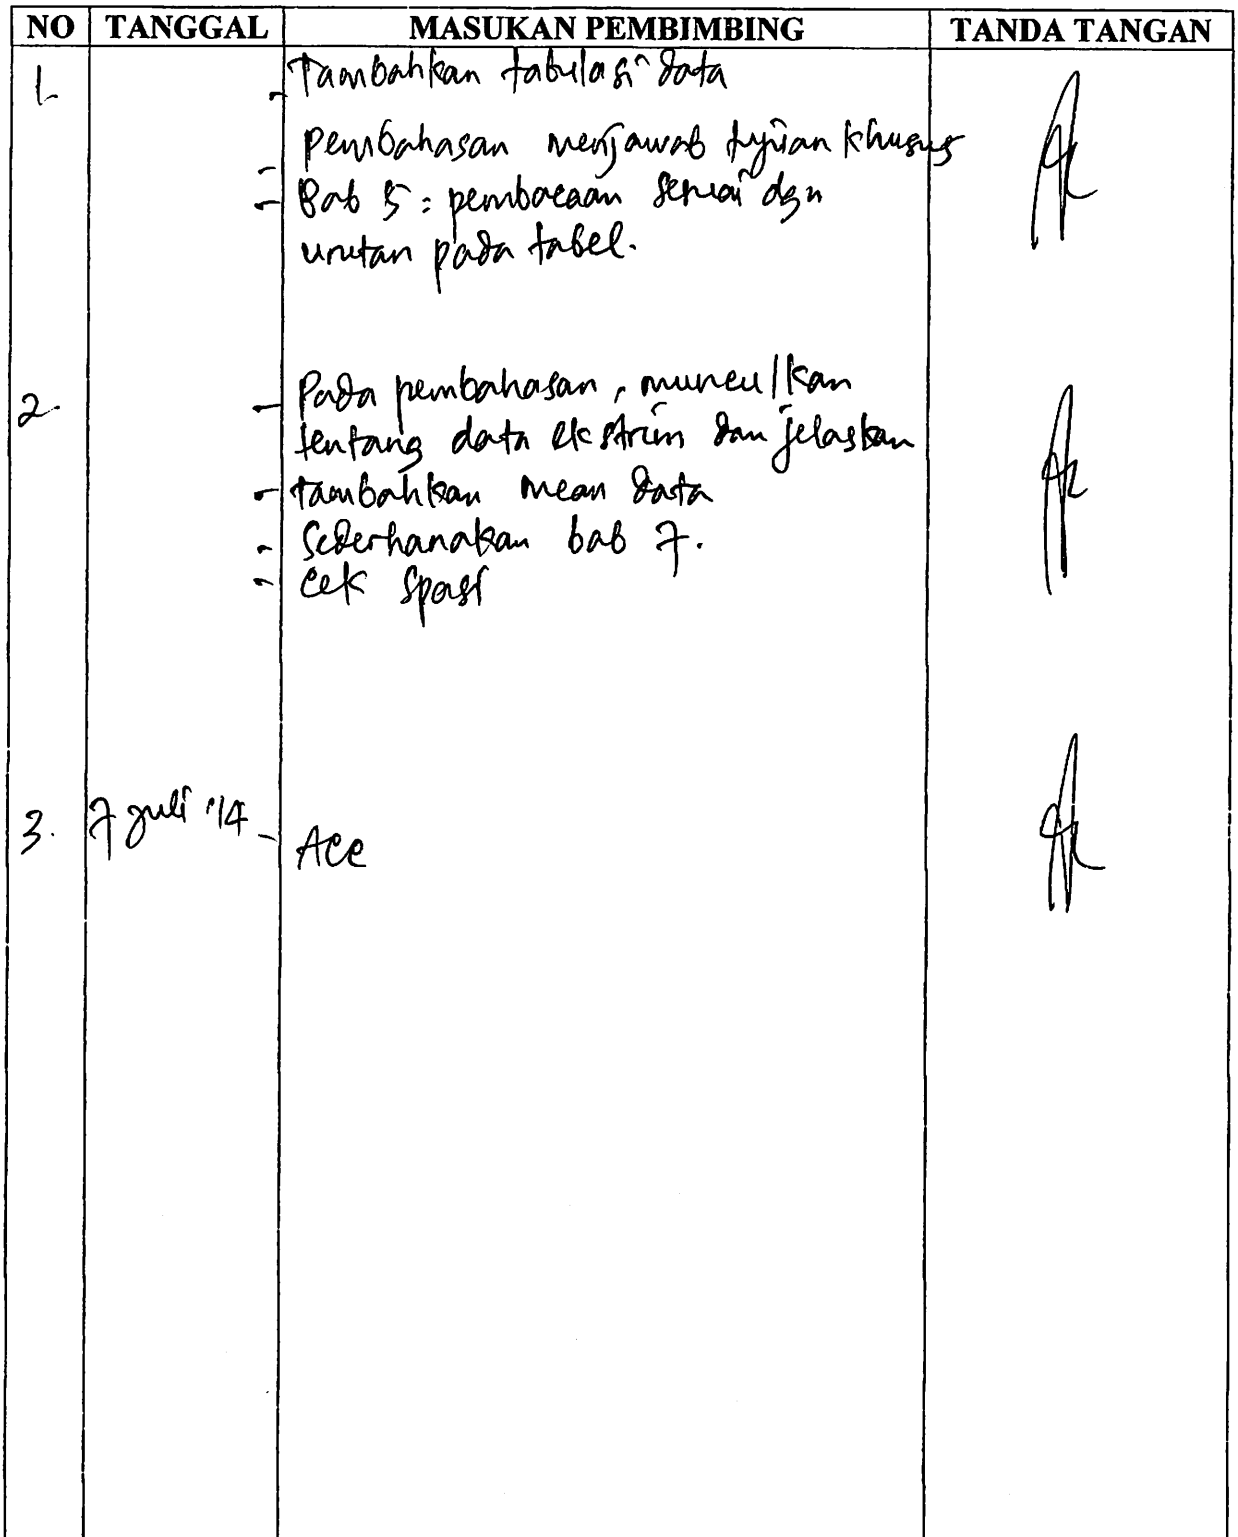 NO TANGGAL MASUKAN PEMBIMBING TANDA TANGAN
1. - Tambahkan tabulasi data
- pembahasan menjawab tujuan khusus
- Bab 5 : pembacaan sesuai dgn
urutan pada tabel.
2. - Pada pembahasan, munculkan
tentang data ekstrim dan jelaskan
- tambahkan mean data
- Sederhanakan bab 7.
- cek spasi
3. 7 Juli '14 - Acc